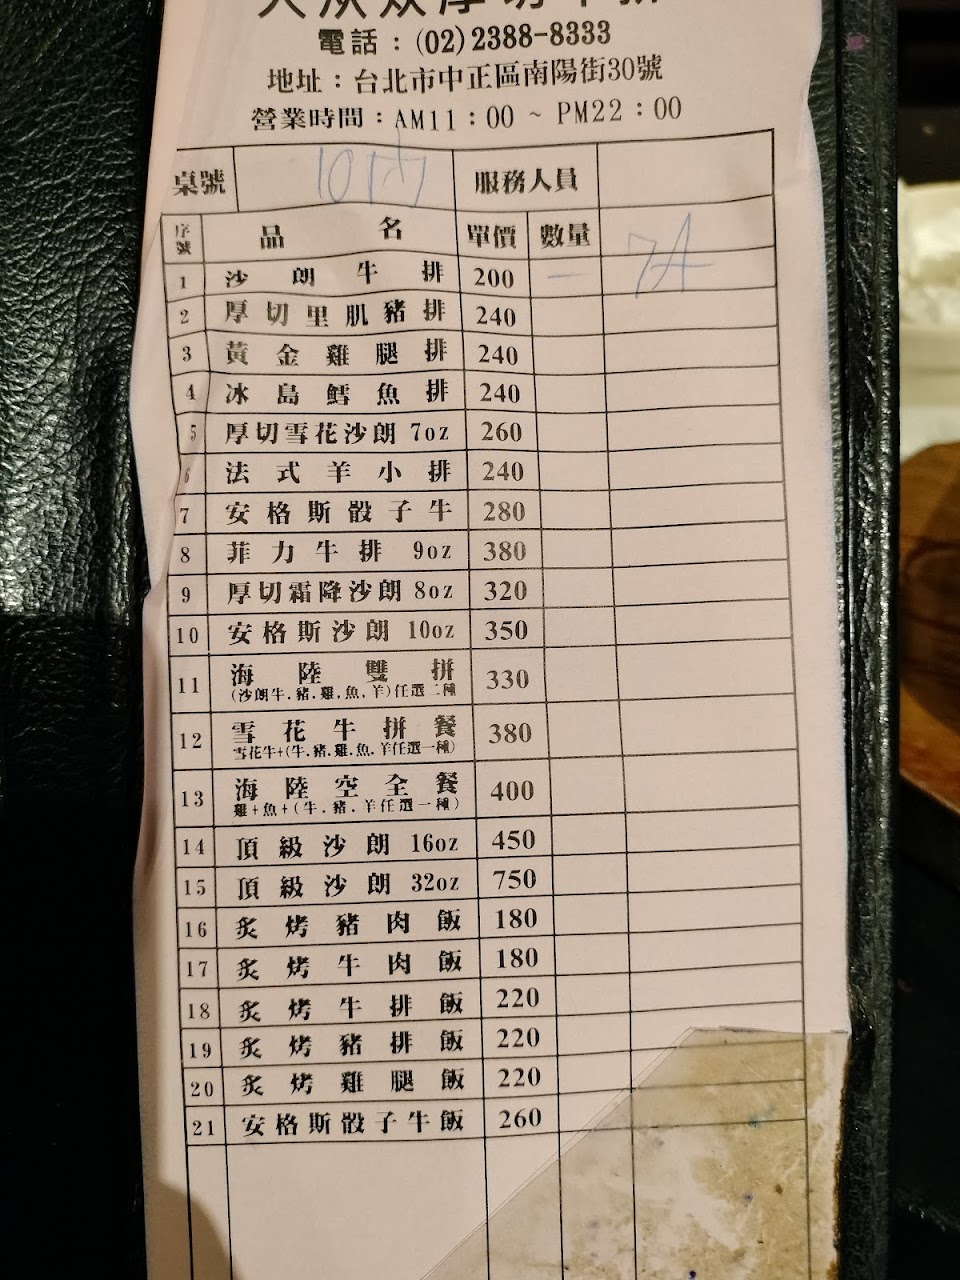 電話：(02)2388-8333
地址：台北市中正區南陽街30號
營業時間：AM11：00 ~ PM22：00
桌號 10內 服務人員
序號 品名 單價 數量
1 沙朗牛排 200 一 7A
2 厚切里肌豬排 240
3 黃金雞腿排 240
4 冰島鱈魚排 240
5 厚切雪花沙朗 7oz 260
6 法式羊小排 240
7 安格斯骰子牛 280
8 菲力牛排 9oz 380
9 厚切霜降沙朗 8oz 320
10 安格斯沙朗 10oz 350
11 海陸雙拼 330
(沙朗牛.豬.雞.魚.羊)任選二種
12 雪花牛拼餐 380
雪花牛+(牛.豬.雞.魚.羊任選一種)
13 海陸空全餐 400
雞+魚+(牛.豬.羊任選一種)
14 頂級沙朗 16oz 450
15 頂級沙朗 32oz 750
16 炙烤豬肉飯 180
17 炙烤牛肉飯 180
18 炙烤牛排飯 220
19 炙烤豬排飯 220
20 炙烤雞腿飯 220
21 安格斯骰子牛飯 260